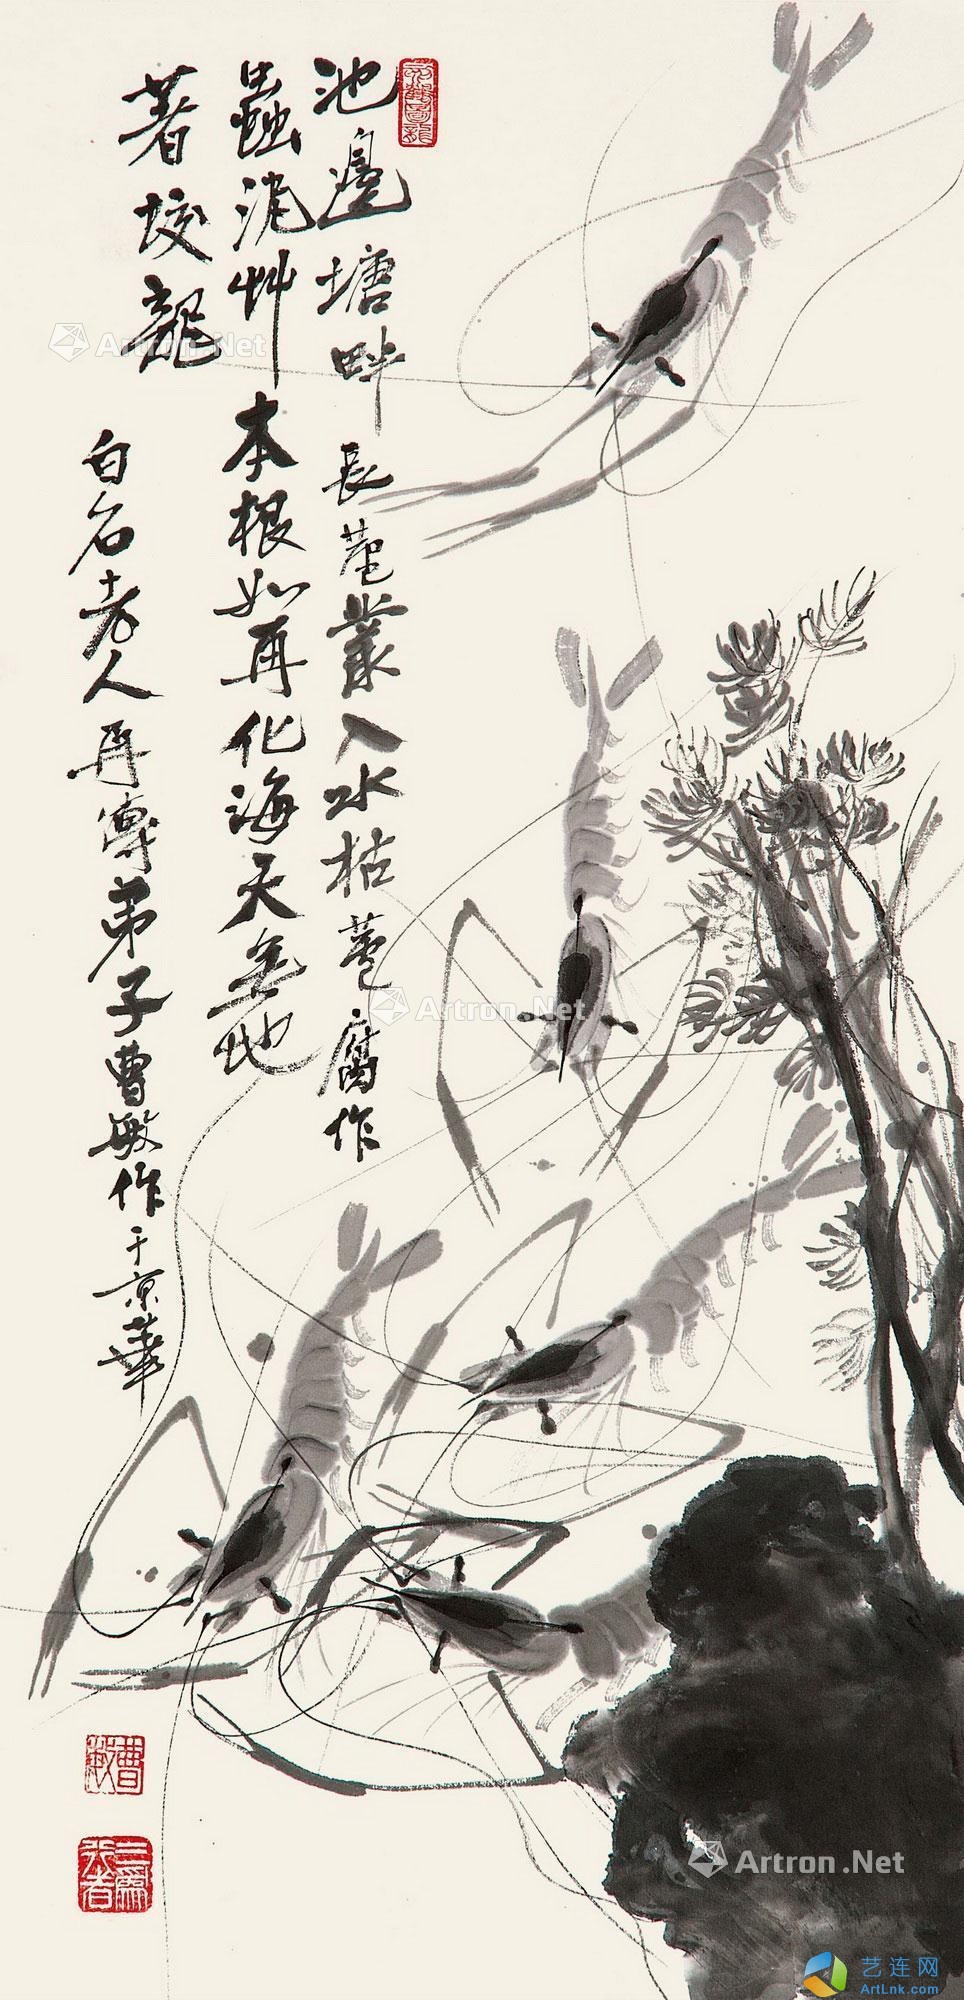 池邊塘畔長蒼叢入水枯蒼腐作
蟲泥艸本根如再化海天無地
著蛟龍
白石老人再傳弟子曹敏作于京華
曹敏
Artron.Net
Artron.Net
Artron.Net
艺连网
ArtLnk.com